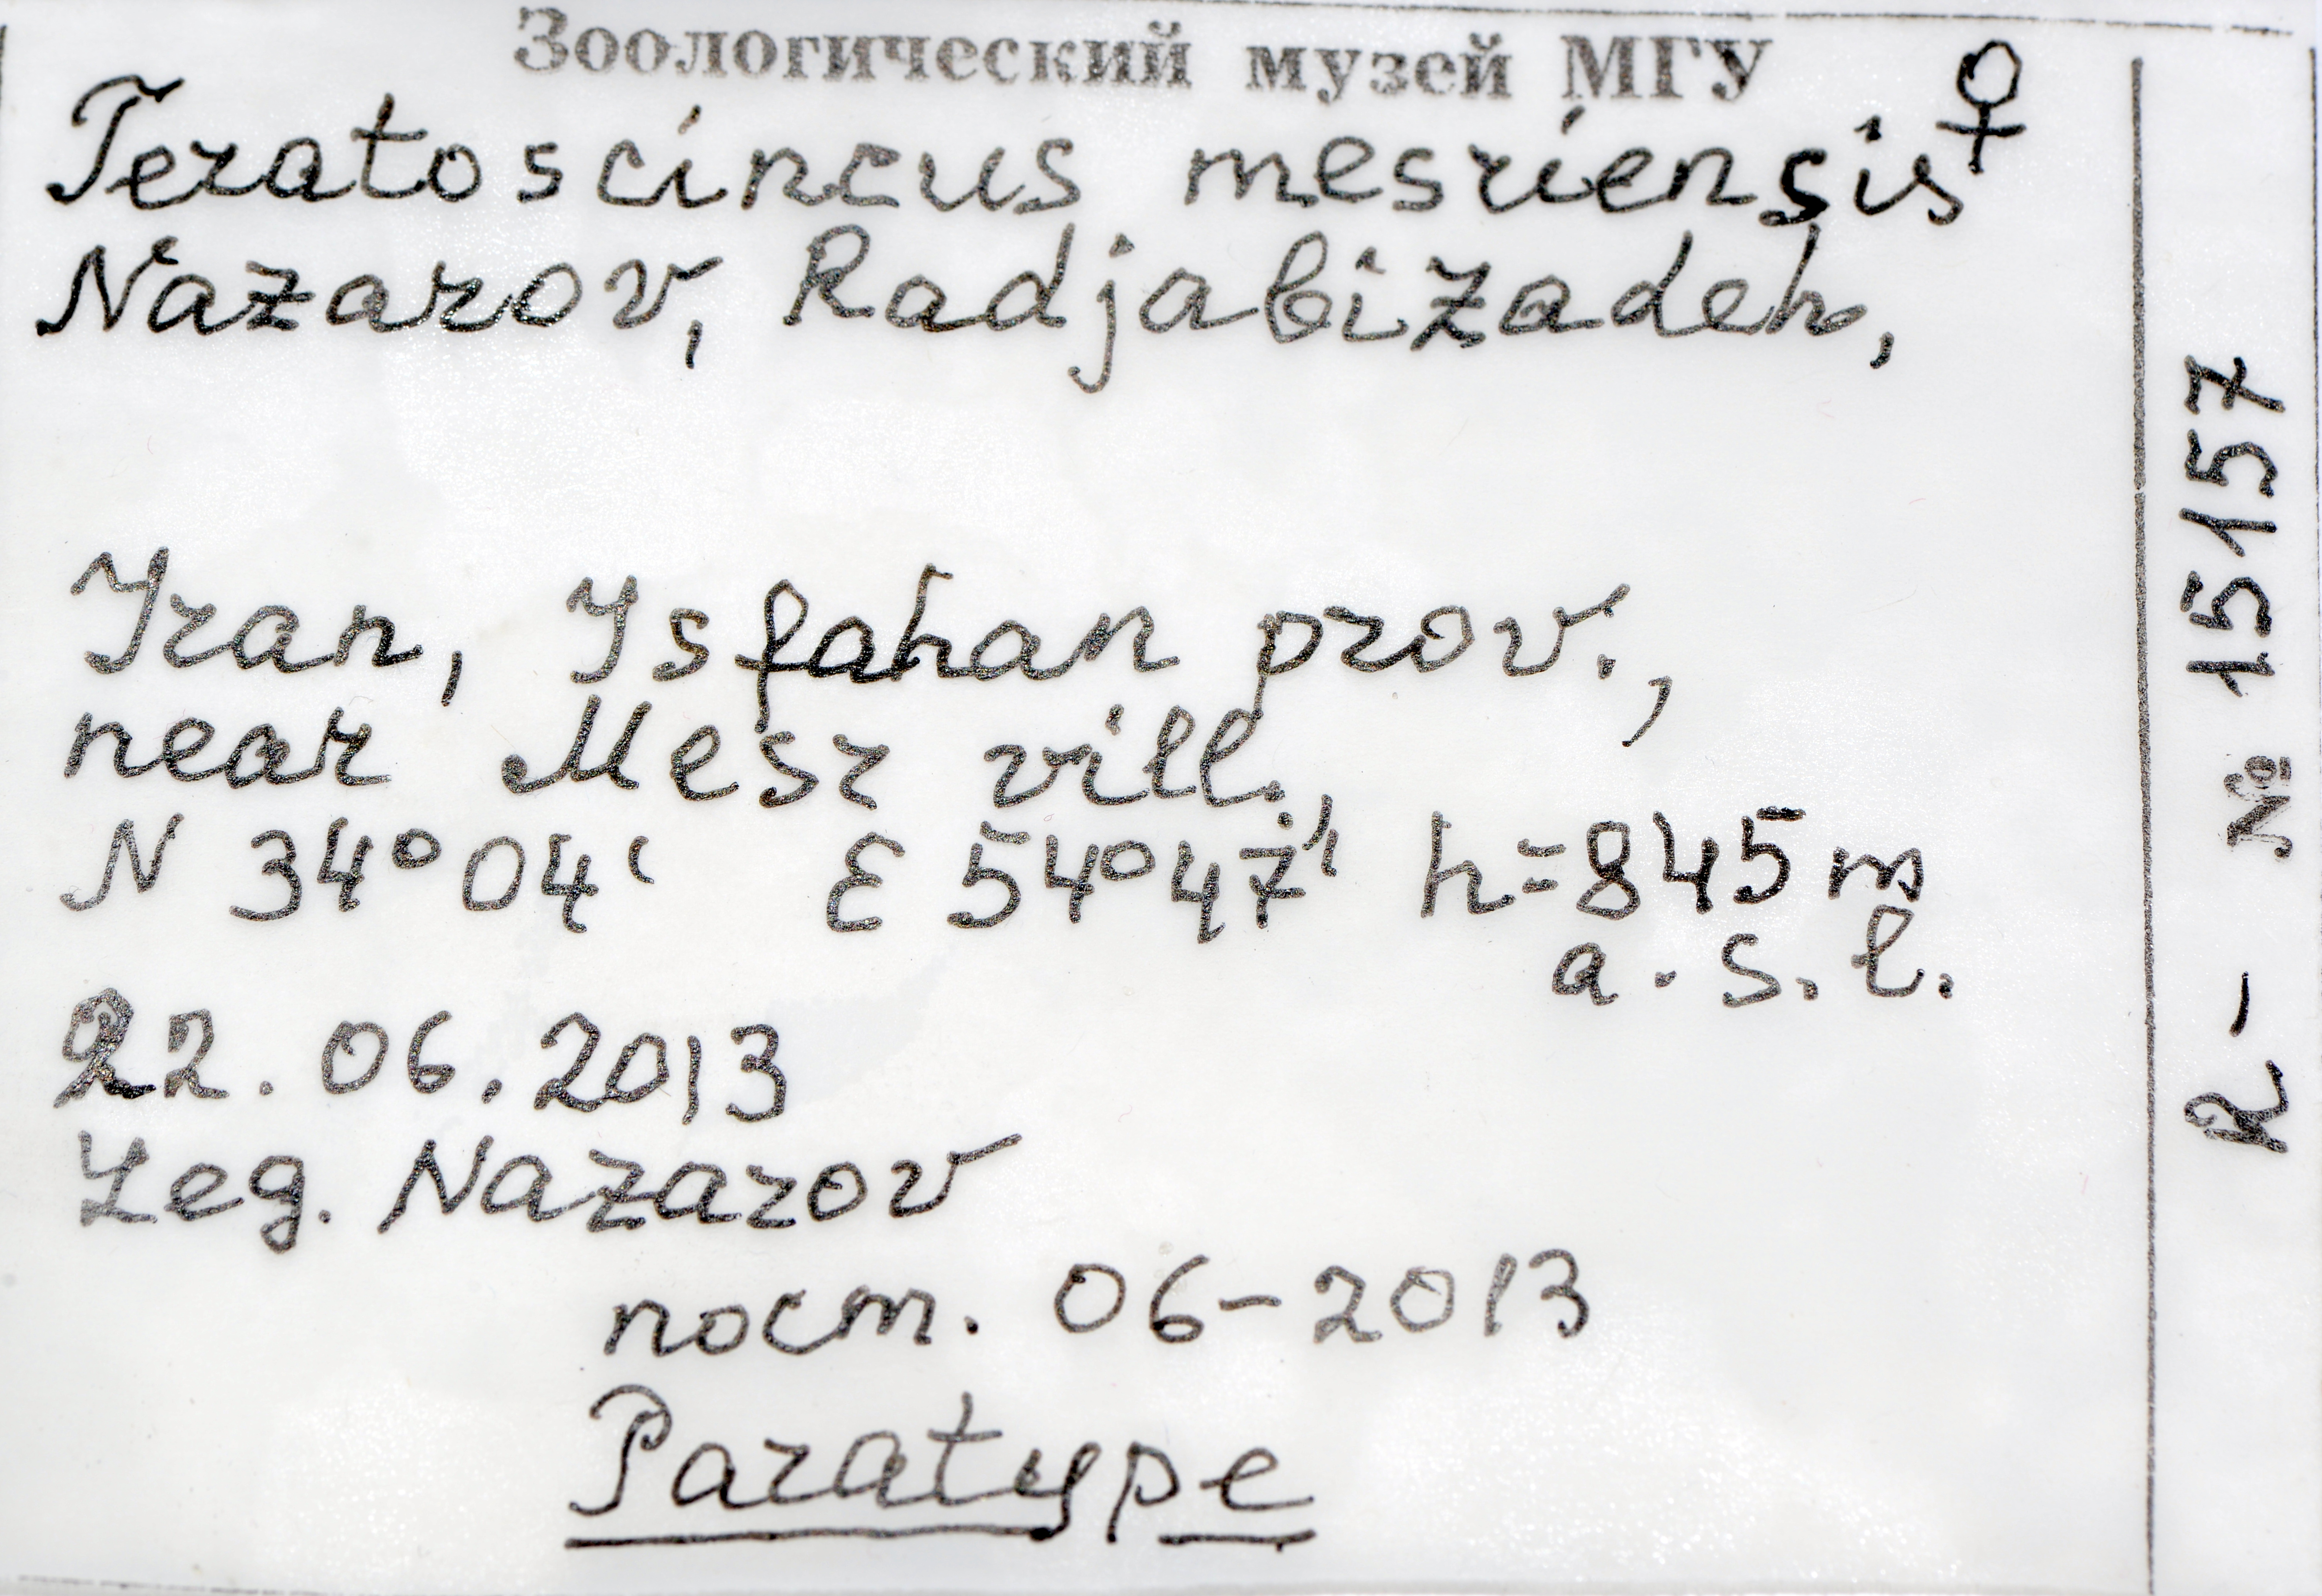 Зоологический музей МГУ
Teratoscincus mesriensis ♀
Nazarov, Radjabizadeh,
Iran, Isfahan prov.,
near Mesr vill.,
N 34°04' E 54°47' h=845 m
a.s.l.
22.06.2013
Leg. Nazarov
пост. 06-2013
Paratype
R- № 15157